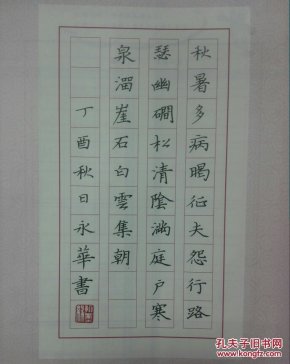 秋暑多病暍征夫怨行路
瑟幽磵松清陰滿庭户寒
泉溜崖石白雲集朝
丁酉秋日永華書
孔夫子旧书网